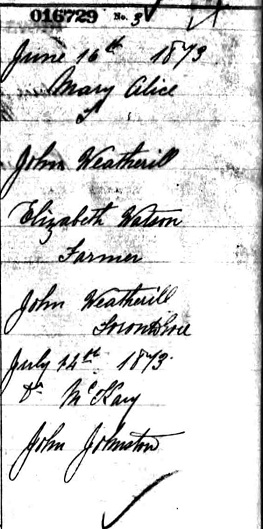 016729 No. 3
June 16th 1873
Mary Alice
John Weatherill
Elizabeth Watson
Farmer
John Weatherill
July 22th 1873.
Dr McKay
John Johnston